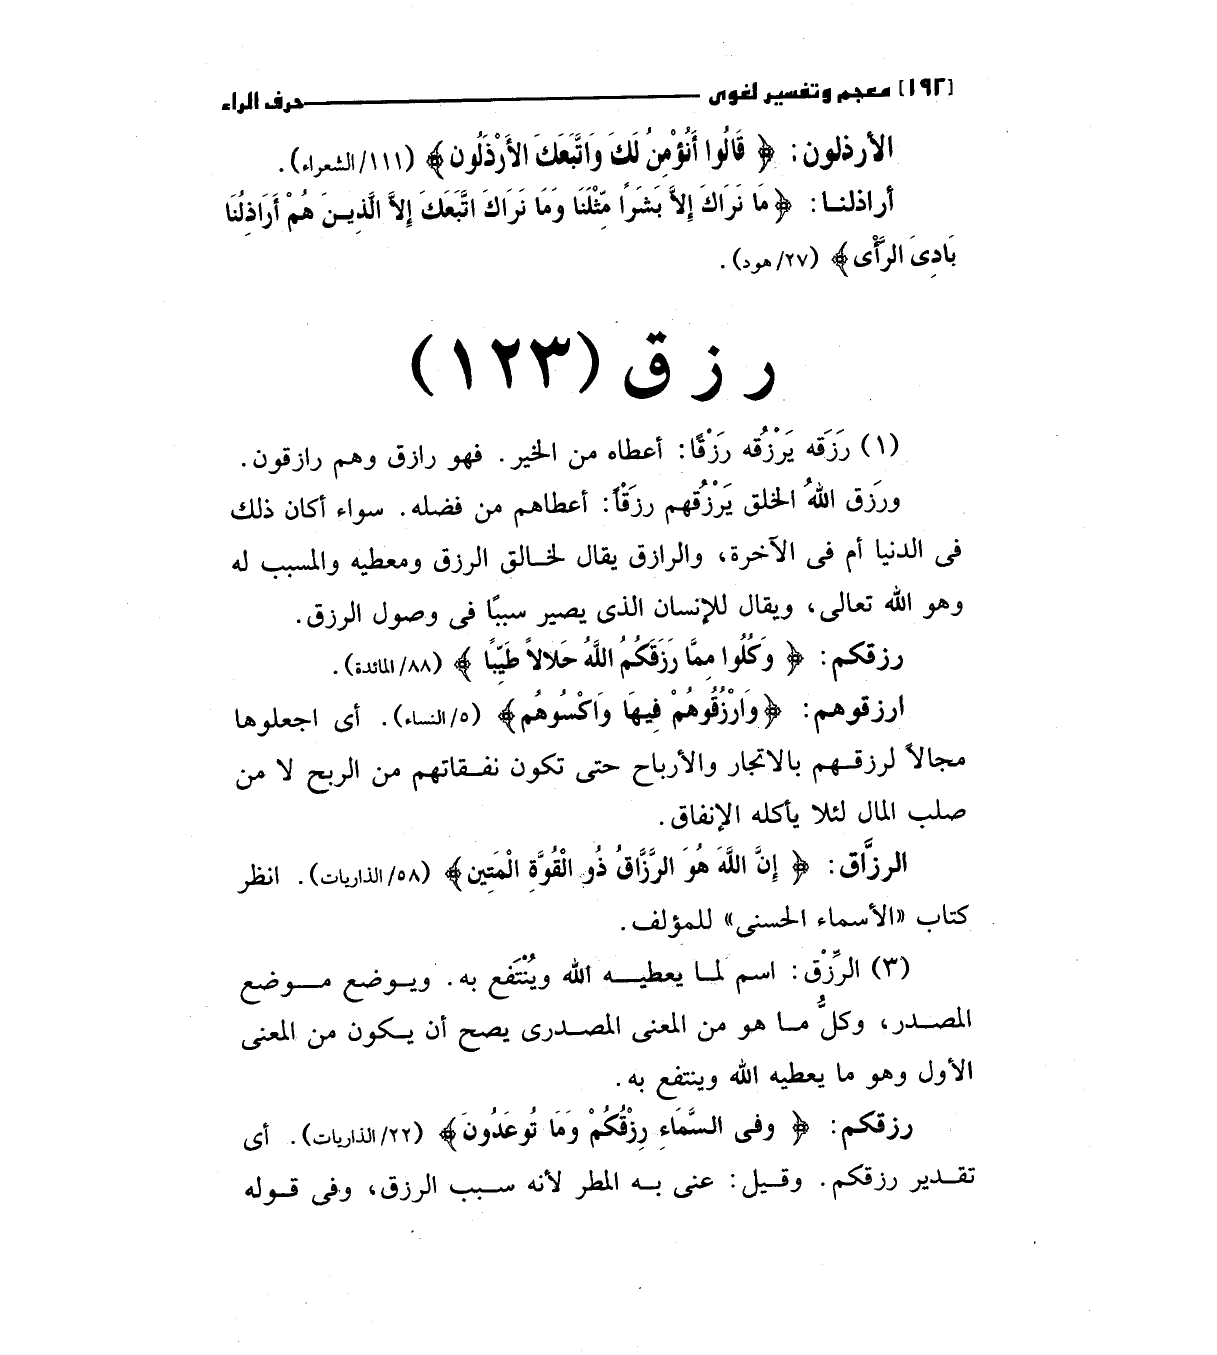 [١٩٢] معجم وتفسير لغوى حرف الراء
الأرذلون: ﴿ قَالُوا أَنُؤْمِنُ لَكَ وَاتَّبَعَكَ الأَرْذَلُون ﴾ (١١١/الشعراء).
أراذلنـا: ﴿ مَا نَرَاكَ إِلاَّ بَشَرًا مِّثْلَنَا وَمَا نَرَاكَ اتَّبَعَكَ إِلاَّ الَّذِيـنَ هُمْ أَرَاذِلُنَا
بَادِىَ الرَّأْى ﴾ (٢٧/هود).
ر ز ق (١٢٣)
(١) رَزَقه يَرْزُقه رَزْقًا: أعطاه من الخير. فهو رازق وهم رازقون.
ورَزق اللهُ الخلق يَرْزُقهم رزَقْاً: أعطاهم من فضله. سواء أكان ذلك
فى الدنيا أم فى الآخرة، والرازق يقال لخـالق الرزق ومعطيه والمسبب له
وهو الله تعالى، ويقال للإنسان الذى يصير سببًا فى وصول الرزق.
رزقكم: ﴿ وَكُلُوا مِمَّا رَزَقَكُمُ اللَّهُ حَلالاً طَيِّبًا ﴾ (٨٨/المائدة).
ارزقوهم: ﴿وَارْزُقُوهُمْ فِيهَا وَاكْسُوهُم﴾ (٥/النساء). أى اجعلوها
مجالاً لرزقـهم بالاتجار والأرباح حتى تكون نفـقاتهم من الربح لا من
صلب المال لئلا يأكله الإنفاق.
الرزَّاق: ﴿ إِنَّ اللَّهَ هُوَ الرَّزَّاقُ ذُو الْقُوَّةِ الْمَتِين ﴾ (٥٨/الذاريات). انظر
كتاب «الأسماء الحسنى» للمؤلف.
(٣) الرِّزْق: اسم لمـا يعطيـــه الله ويُنْتَفع به. ويـوضع مـــوضع
المصــدر، وكلُّ مـا هو من المعنى المصـدرى يصح أن يـكون من المعنى
الأول وهو ما يعطيه الله وينتفع به.
رزقكم: ﴿ وفى السَّمَاءِ رِزْقُكُمْ وَمَا تُوعَدُونَ ﴾ (٢٢/الذاريات). أى
تقـدير رزقكم. وقـيل: عنى بـه المطر لأنه سـبب الرزق، وفى قـوله